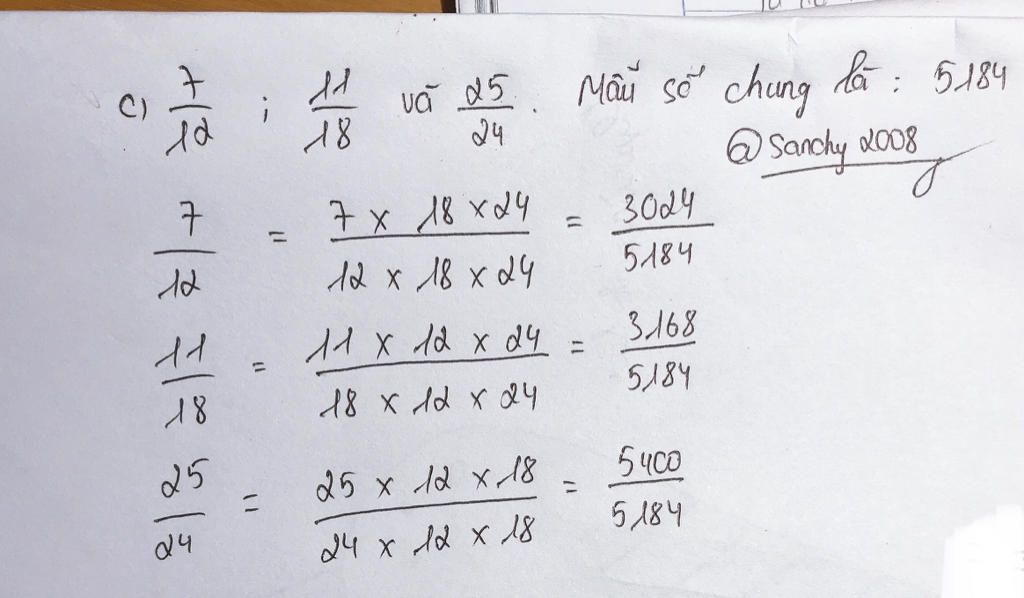 c) 7/12 ; 11/18 và 25/24 . Mẫu số chung là : 5184
@Sanchy 2008
7/12 = 7 x 18 x 24 / 12 x 18 x 24 = 3024/5184
11/18 = 11 x 12 x 24 / 18 x 12 x 24 = 3168/5184
25/24 = 25 x 12 x 18 / 24 x 12 x 18 = 5400/5184